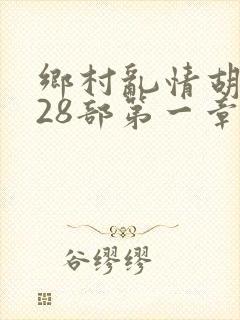 鄉村亂情胡
28部第一章
谷缪缪